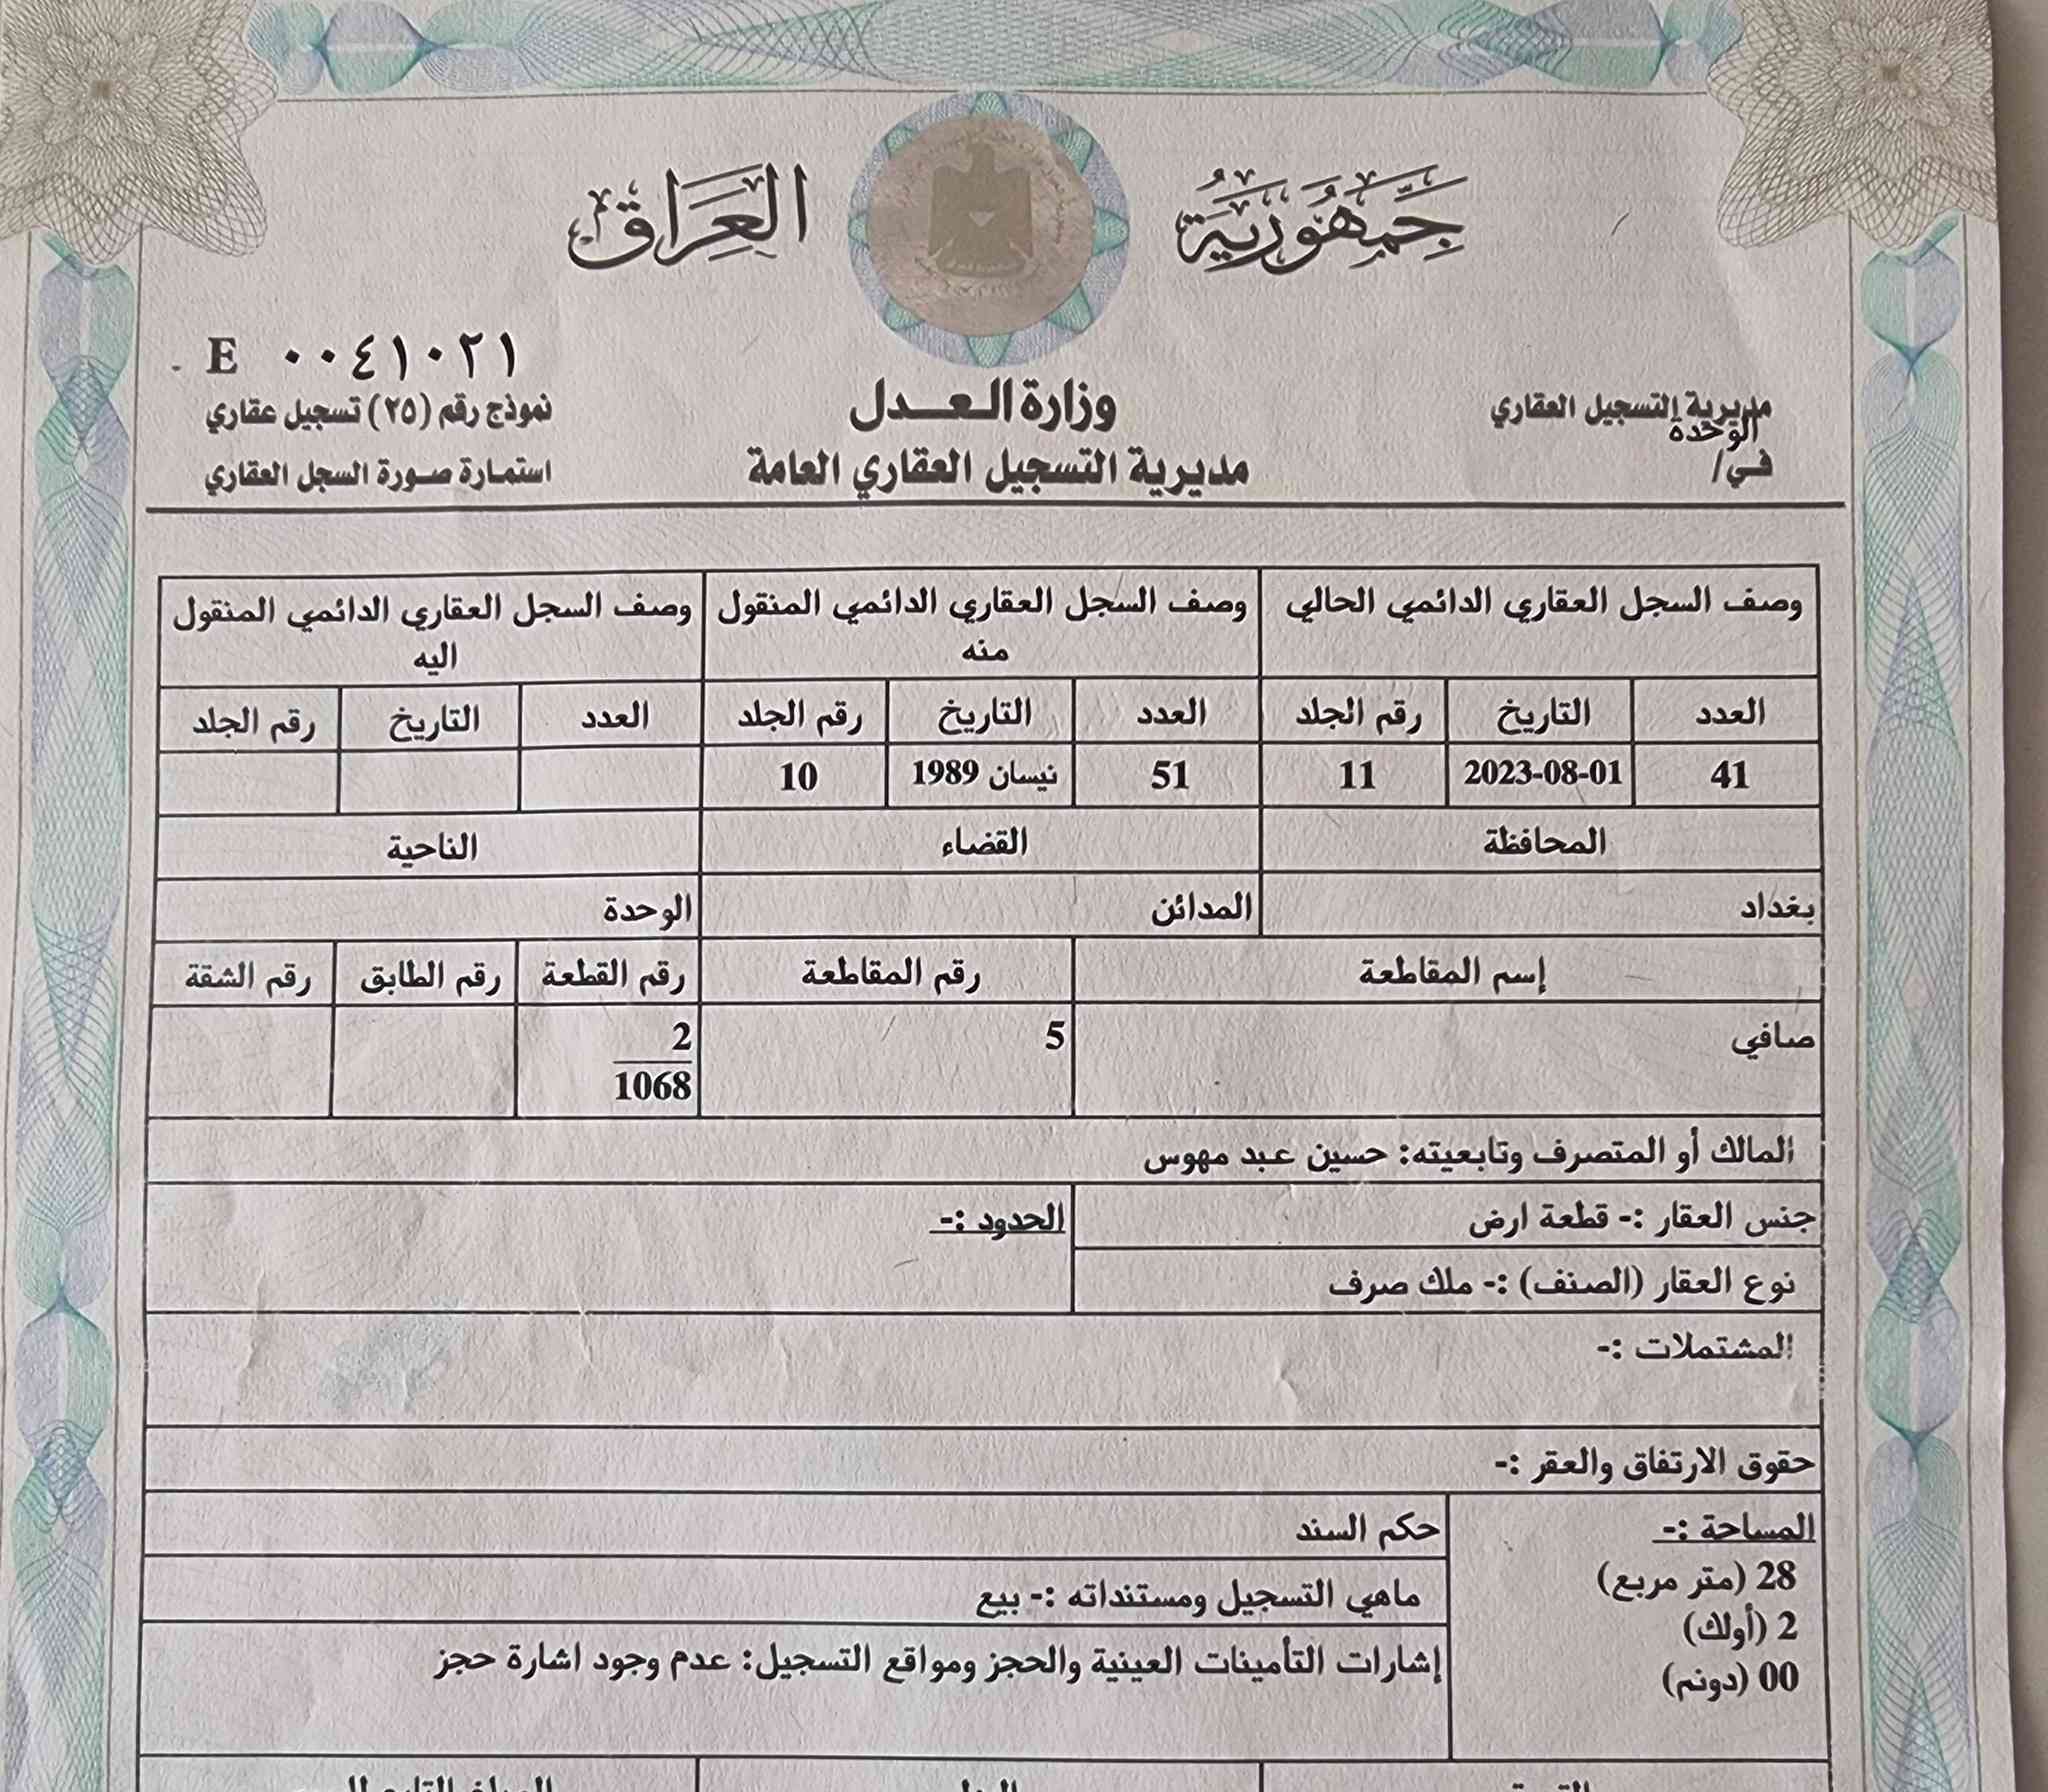 جمهورية العراق
E ٠٠٤١٠٢١
مديرية التسجيل العقاري
الوحدة
في/
وزارة العدل
مديرية التسجيل العقاري العامة
نموذج رقم (٢٥) تسجيل عقاري
استمارة صورة السجل العقاري
وصف السجل العقاري الدائمي الحالي
وصف السجل العقاري الدائمي المنقول
منه
وصف السجل العقاري الدائمي المنقول
اليه
العدد التاريخ رقم الجلد العدد التاريخ رقم الجلد العدد التاريخ رقم الجلد
41 2023-08-01 11 51 نيسان 1989 10
المحافظة القضاء الناحية
بغداد المدائن الوحدة
إسم المقاطعة رقم المقاطعة رقم القطعة رقم الطابق رقم الشقة
صافي 5 2
1068
المالك أو المتصرف وتابعيته: حسين عبد مهوس
جنس العقار :- قطعة ارض
نوع العقار (الصنف) :- ملك صرف
الحدود :-
المشتملات :-
حقوق الارتفاق والعقر :-
المساحة :-
28 (متر مربع)
2 (أولك)
00 (دونم)
حكم السند
ماهي التسجيل ومستنداته :- بيع
إشارات التأمينات العينية والحجز ومواقع التسجيل: عدم وجود اشارة حجز